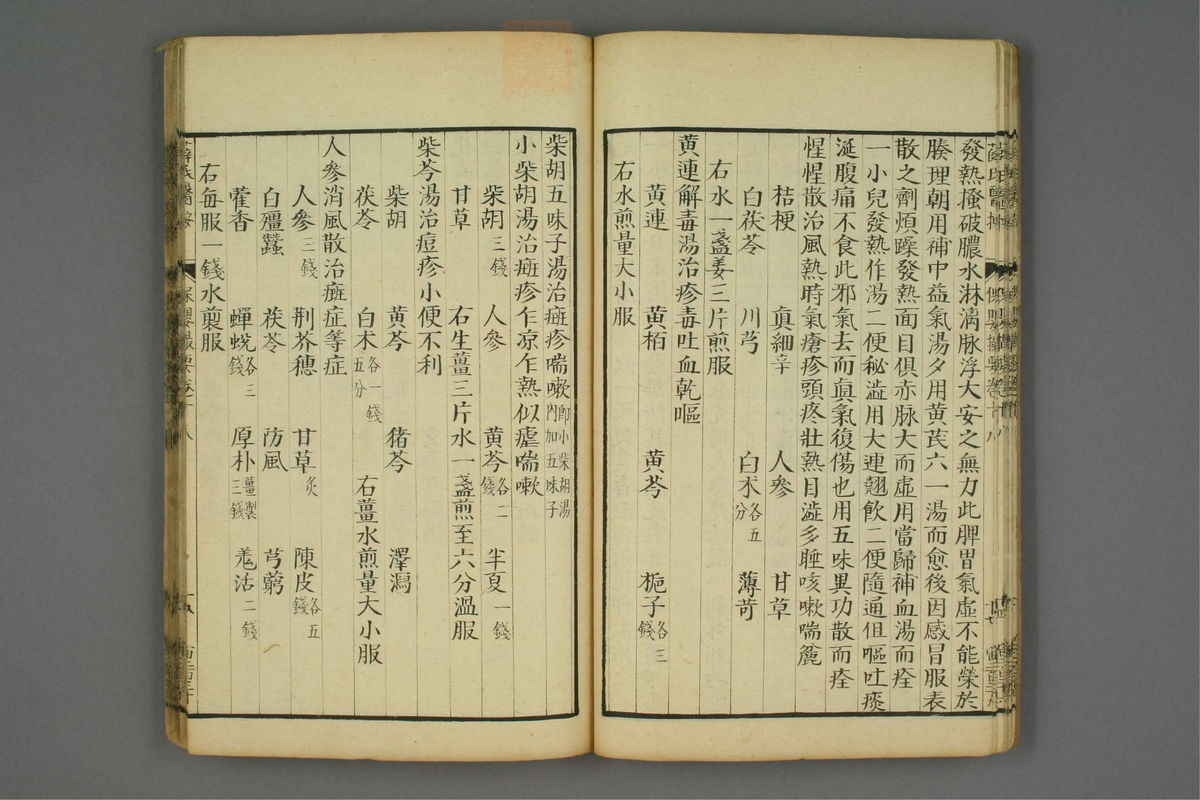 發熱搔破膿水淋漓脉浮大按之無力此脾胃氣虛不能榮於
腠理朝用補中益氣湯夕用黃芪六一湯而愈後因感冒服表
散之劑煩躁發熱面目俱赤脉大而虛用當歸補血湯而痊
一小兒發熱作湯二便秘澁用大連翹飲二便隨通但嘔吐痰
涎腹痛不食此邪氣去而眞氣復傷也用五味異功散而痊
惺惺散治風熱時氣瘡疹頭疼壯熱目澁多睡咳嗽喘麄
桔梗 眞細辛 人參 甘草
白茯苓 川芎 白术各五分 薄苛
右水一盞姜三片煎服
黃連解毒湯治疹毒吐血乾嘔
黃連 黃栢 黃芩 梔子各三錢
右水煎量大小服
柴胡五味子湯治癍疹喘嗽即小柴胡湯內加五味子
小柴胡湯治癍疹乍凉乍熱似瘧喘嗽
柴胡三錢 人參 黃芩各二錢 半夏一錢
甘草 右生薑三片水一盞煎至六分溫服
柴苓湯治痘疹小便不利
柴胡 黃芩 猪苓 澤瀉
茯苓 白术各一錢五分 右薑水煎量大小服
人參消風散治癍症等症
人參三錢 荆芥穗 甘草炙 陳皮各五錢
白殭蠶 茯苓 防風 芎藭
藿香 蟬蛻各三錢 厚朴薑製三錢 羗活二錢
右每服一錢水煎服